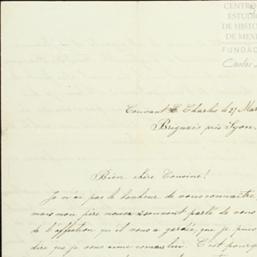 CENTRO
ESTUDI
DE HISTO
DE MEXI
FUNDAC
Carlos
Couvent St Charles le 27 Mar
Brignais près Lyon.
Bien chère Cousine!
Je n'ai pas le bonheur de vous connaître
mais mon père nous a souvent parlé de vous
de l'affection qu'il vous a gardée, que je puis
dire que je vous aime comme lui. C'est pourquoi